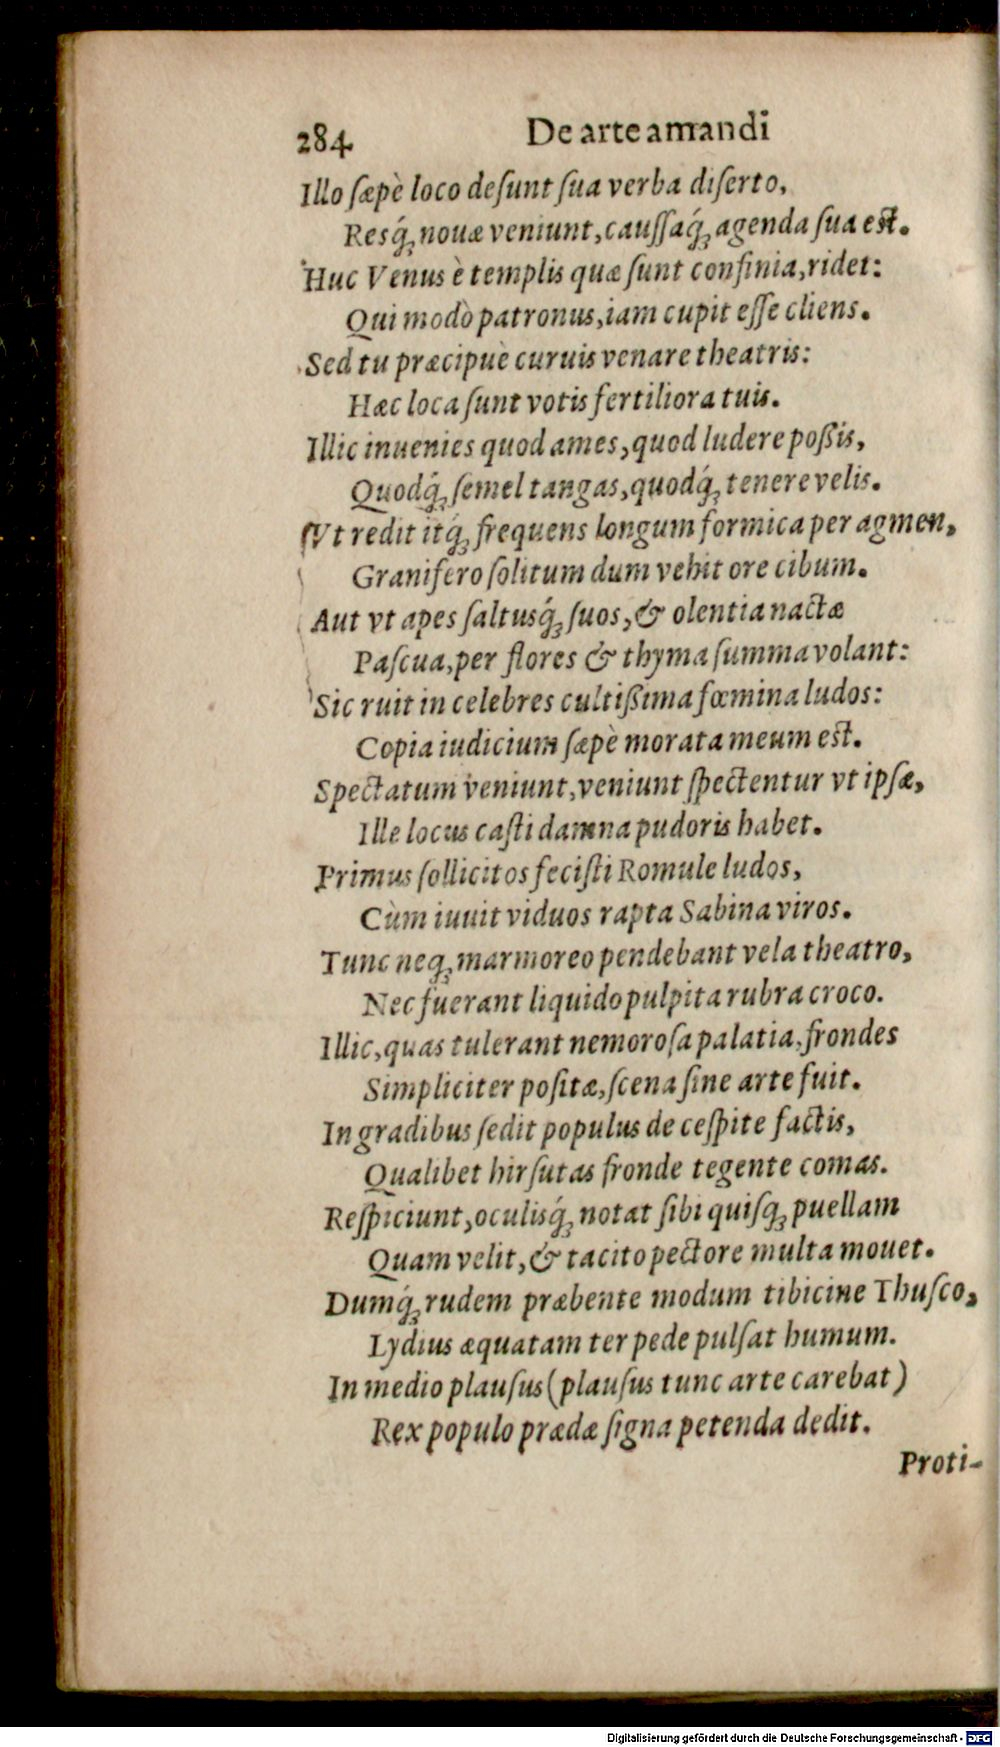 284 De arte amandi
Illo sæpè loco deſunt ſua verba diſerto,
Resq́; nouæ veniunt, cauſſaq́; agenda ſua eſt.
Huc Venus è templis quæ ſunt confinia, ridet:
Qui modò patronus, iam cupit eſſe cliens.
Sed tu præcipuè curuis venare theatris:
Hæc loca ſunt votis fertiliora tuis.
Illic inuenies quod ames, quod ludere poßis,
Quodq́; ſemel tangas, quodq́; tenere velis.
Vt redit itq́; frequens longum formica per agmen,
Granifero ſolitum dum vehit ore cibum.
Aut vt apes ſaltusq́; ſuos, & olentia nactæ
Paſcua, per flores & thyma ſumma volant:
Sic ruit in celebres cultißima fœmina ludos:
Copia iudicium ſæpè morata meum eſt.
Spectatum veniunt, veniunt ſpectentur vt ipſæ,
Ille locus caſti damna pudoris habet.
Primus ſollicitos feciſti Romule ludos,
Cùm iuuit viduos rapta Sabina viros.
Tunc neq; marmoreo pendebant vela theatro,
Nec fuerant liquido pulpita rubra croco.
Illic, quas tulerant nemoroſa palatia, frondes
Simpliciter poſitæ, ſcena ſine arte fuit.
In gradibus ſedit populus de ceſpite factis,
Qualibet hirſutas fronde tegente comas.
Reſpiciunt, oculisq́; notat ſibi quiſq; puellam
Quam velit, & tacito pectore multa mouet.
Dumq́; rudem præbente modum tibicine Thuſco,
Lydius æquatam ter pede pulſat humum.
In medio plauſus (plauſus tunc arte carebat)
Rex populo prædæ ſigna petenda dedit.
Proti-
Digitalisierung gefördert durch die Deutsche Forschungsgemeinschaft - DFG